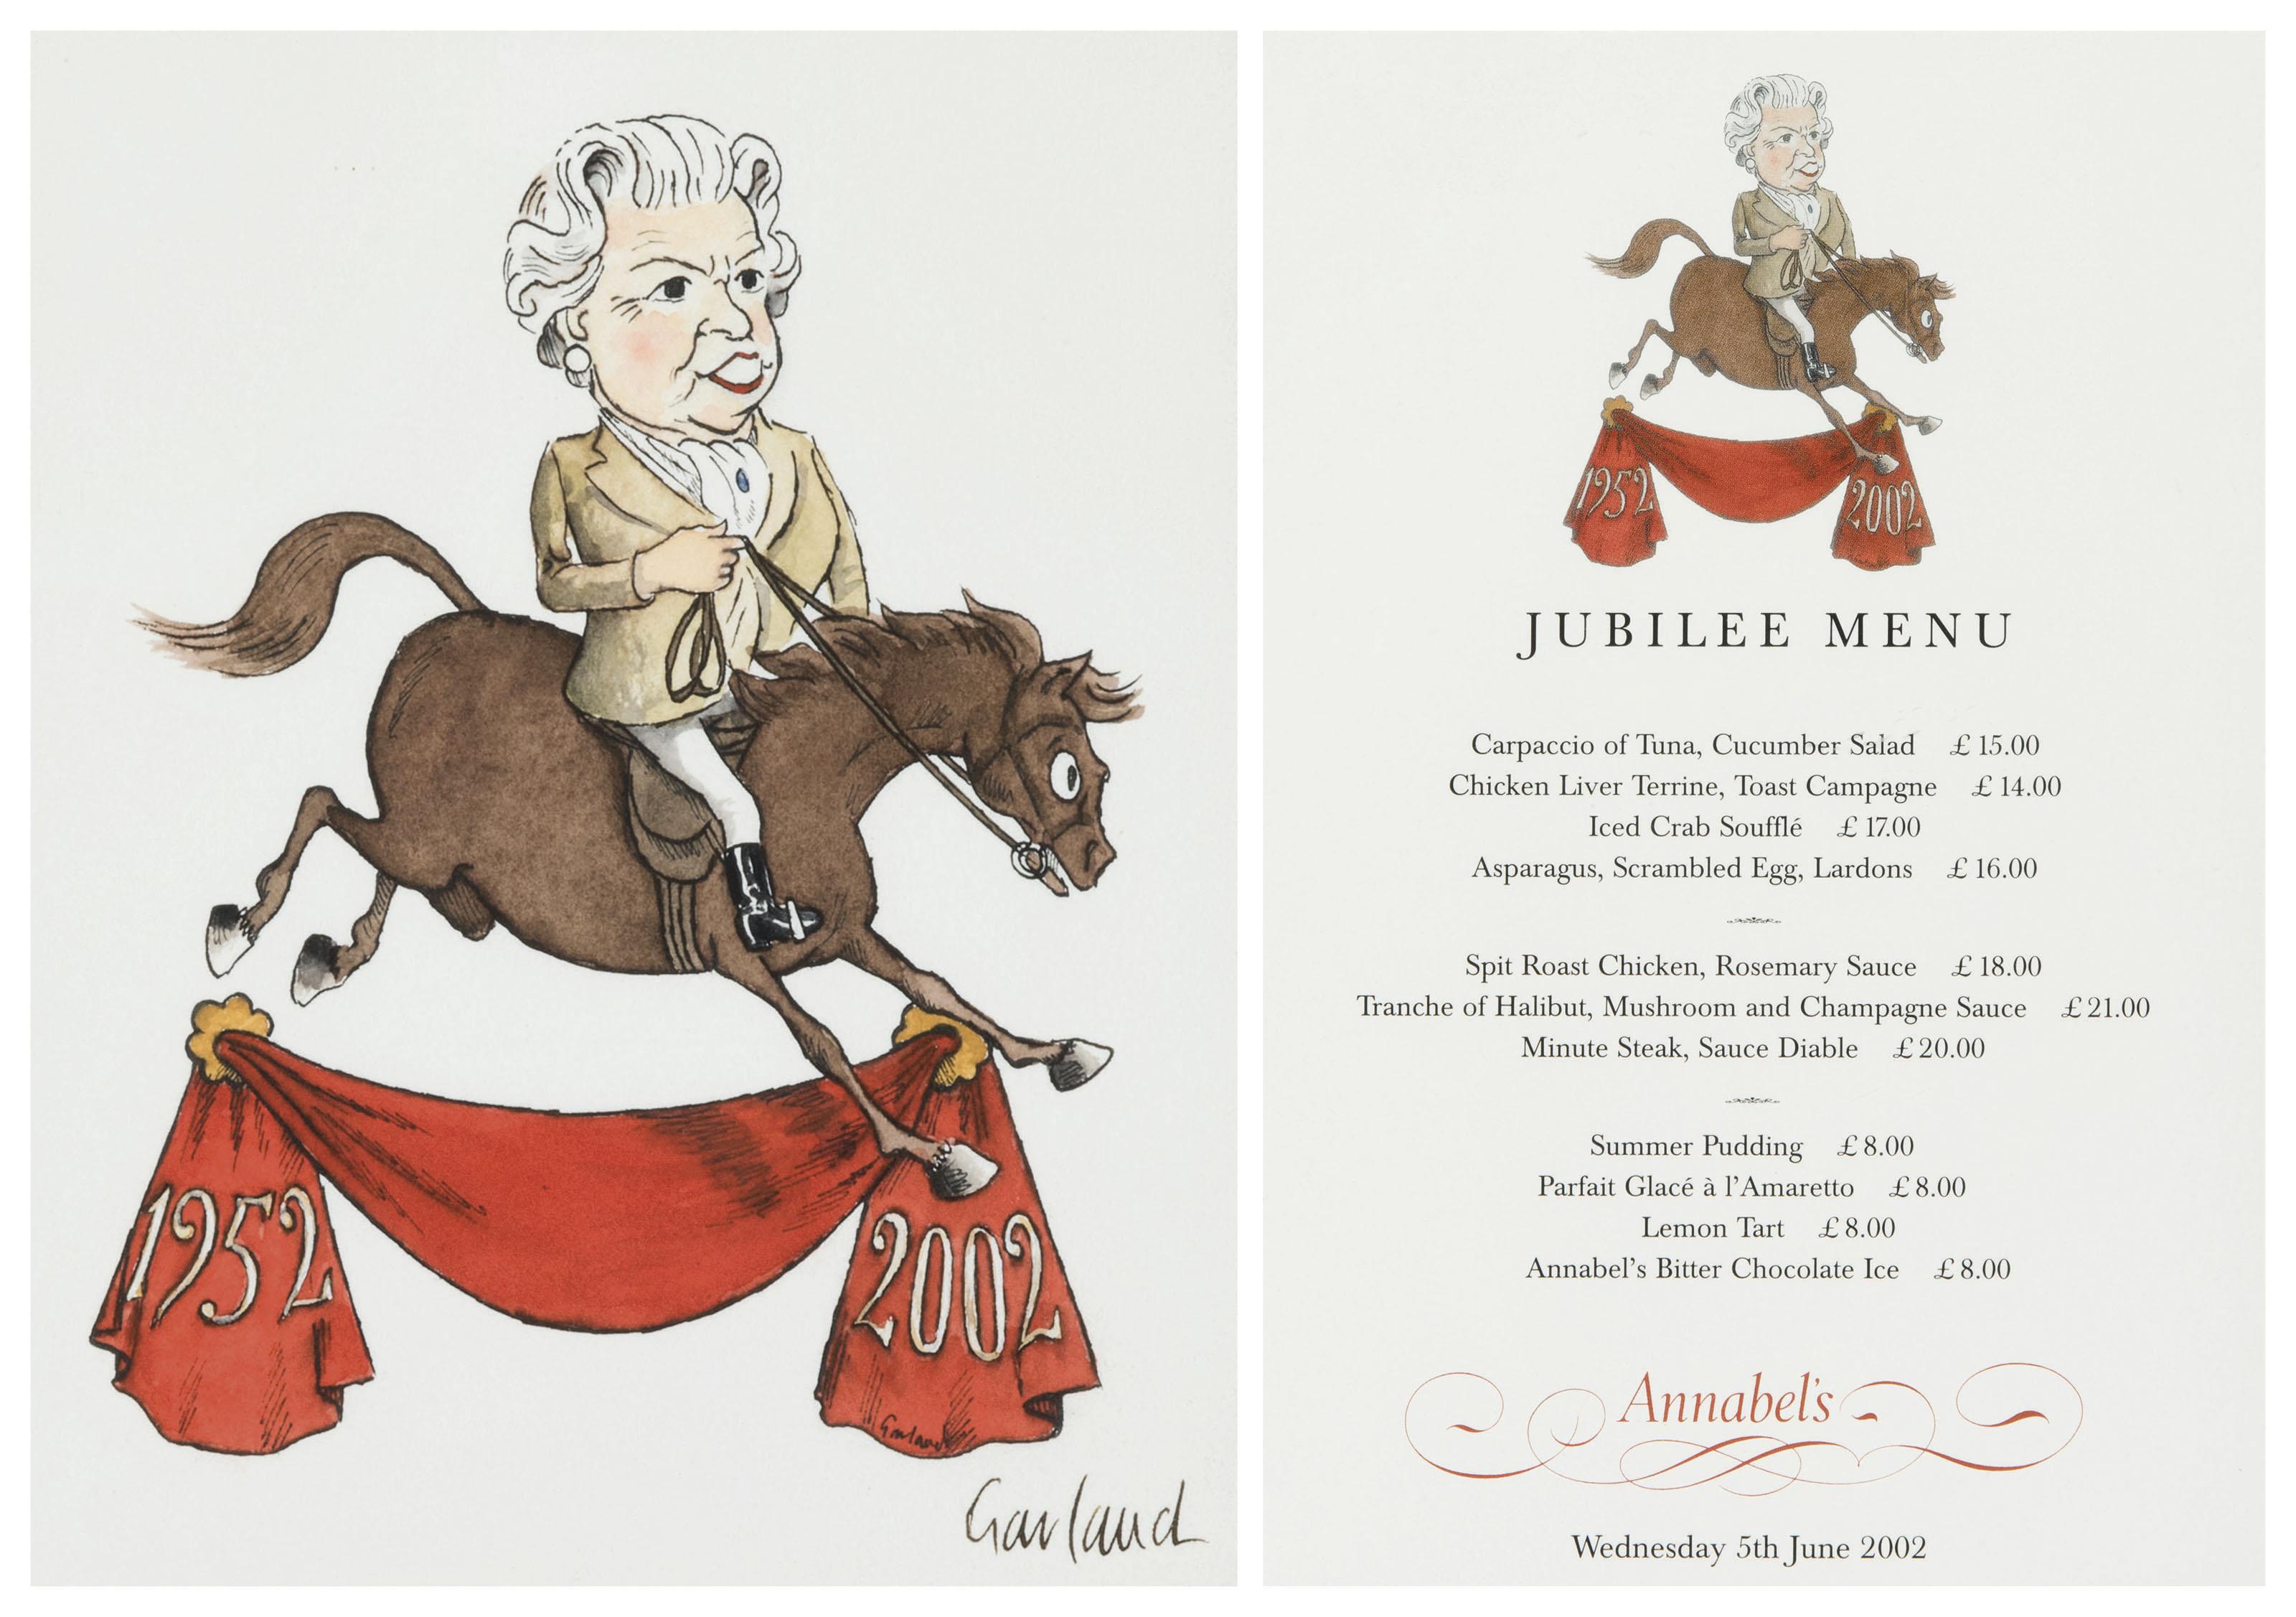 1952
2002
Garland
Garland
1952
2002
JUBILEE MENU
Carpaccio of Tuna, Cucumber Salad £15.00
Chicken Liver Terrine, Toast Campagne £14.00
Iced Crab Soufflé £17.00
Asparagus, Scrambled Egg, Lardons £16.00
Spit Roast Chicken, Rosemary Sauce £18.00
Tranche of Halibut, Mushroom and Champagne Sauce £21.00
Minute Steak, Sauce Diable £20.00
Summer Pudding £8.00
Parfait Glacé à l’Amaretto £8.00
Lemon Tart £8.00
Annabel’s Bitter Chocolate Ice £8.00
Annabel’s
Wednesday 5th June 2002